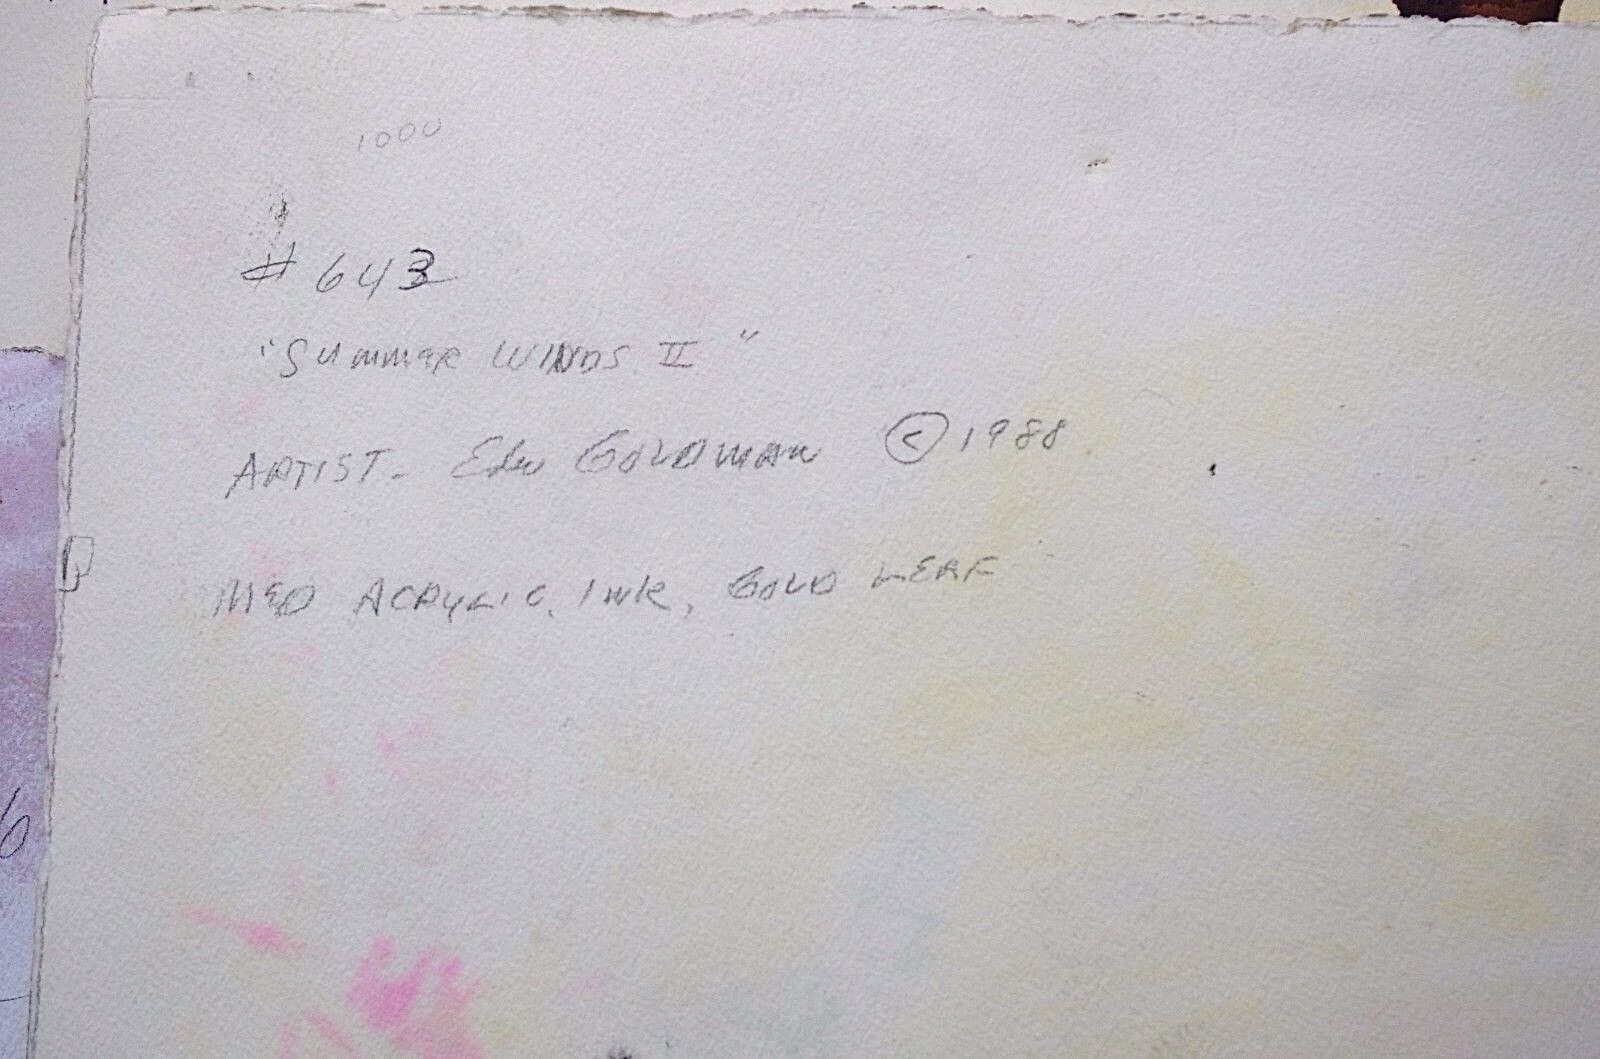 1000
# 643
"SUMMER WINDS II"
ARTIST - GOLDMAN © 1988
MED ACRYLIC, INK, GOLD LEAF
6